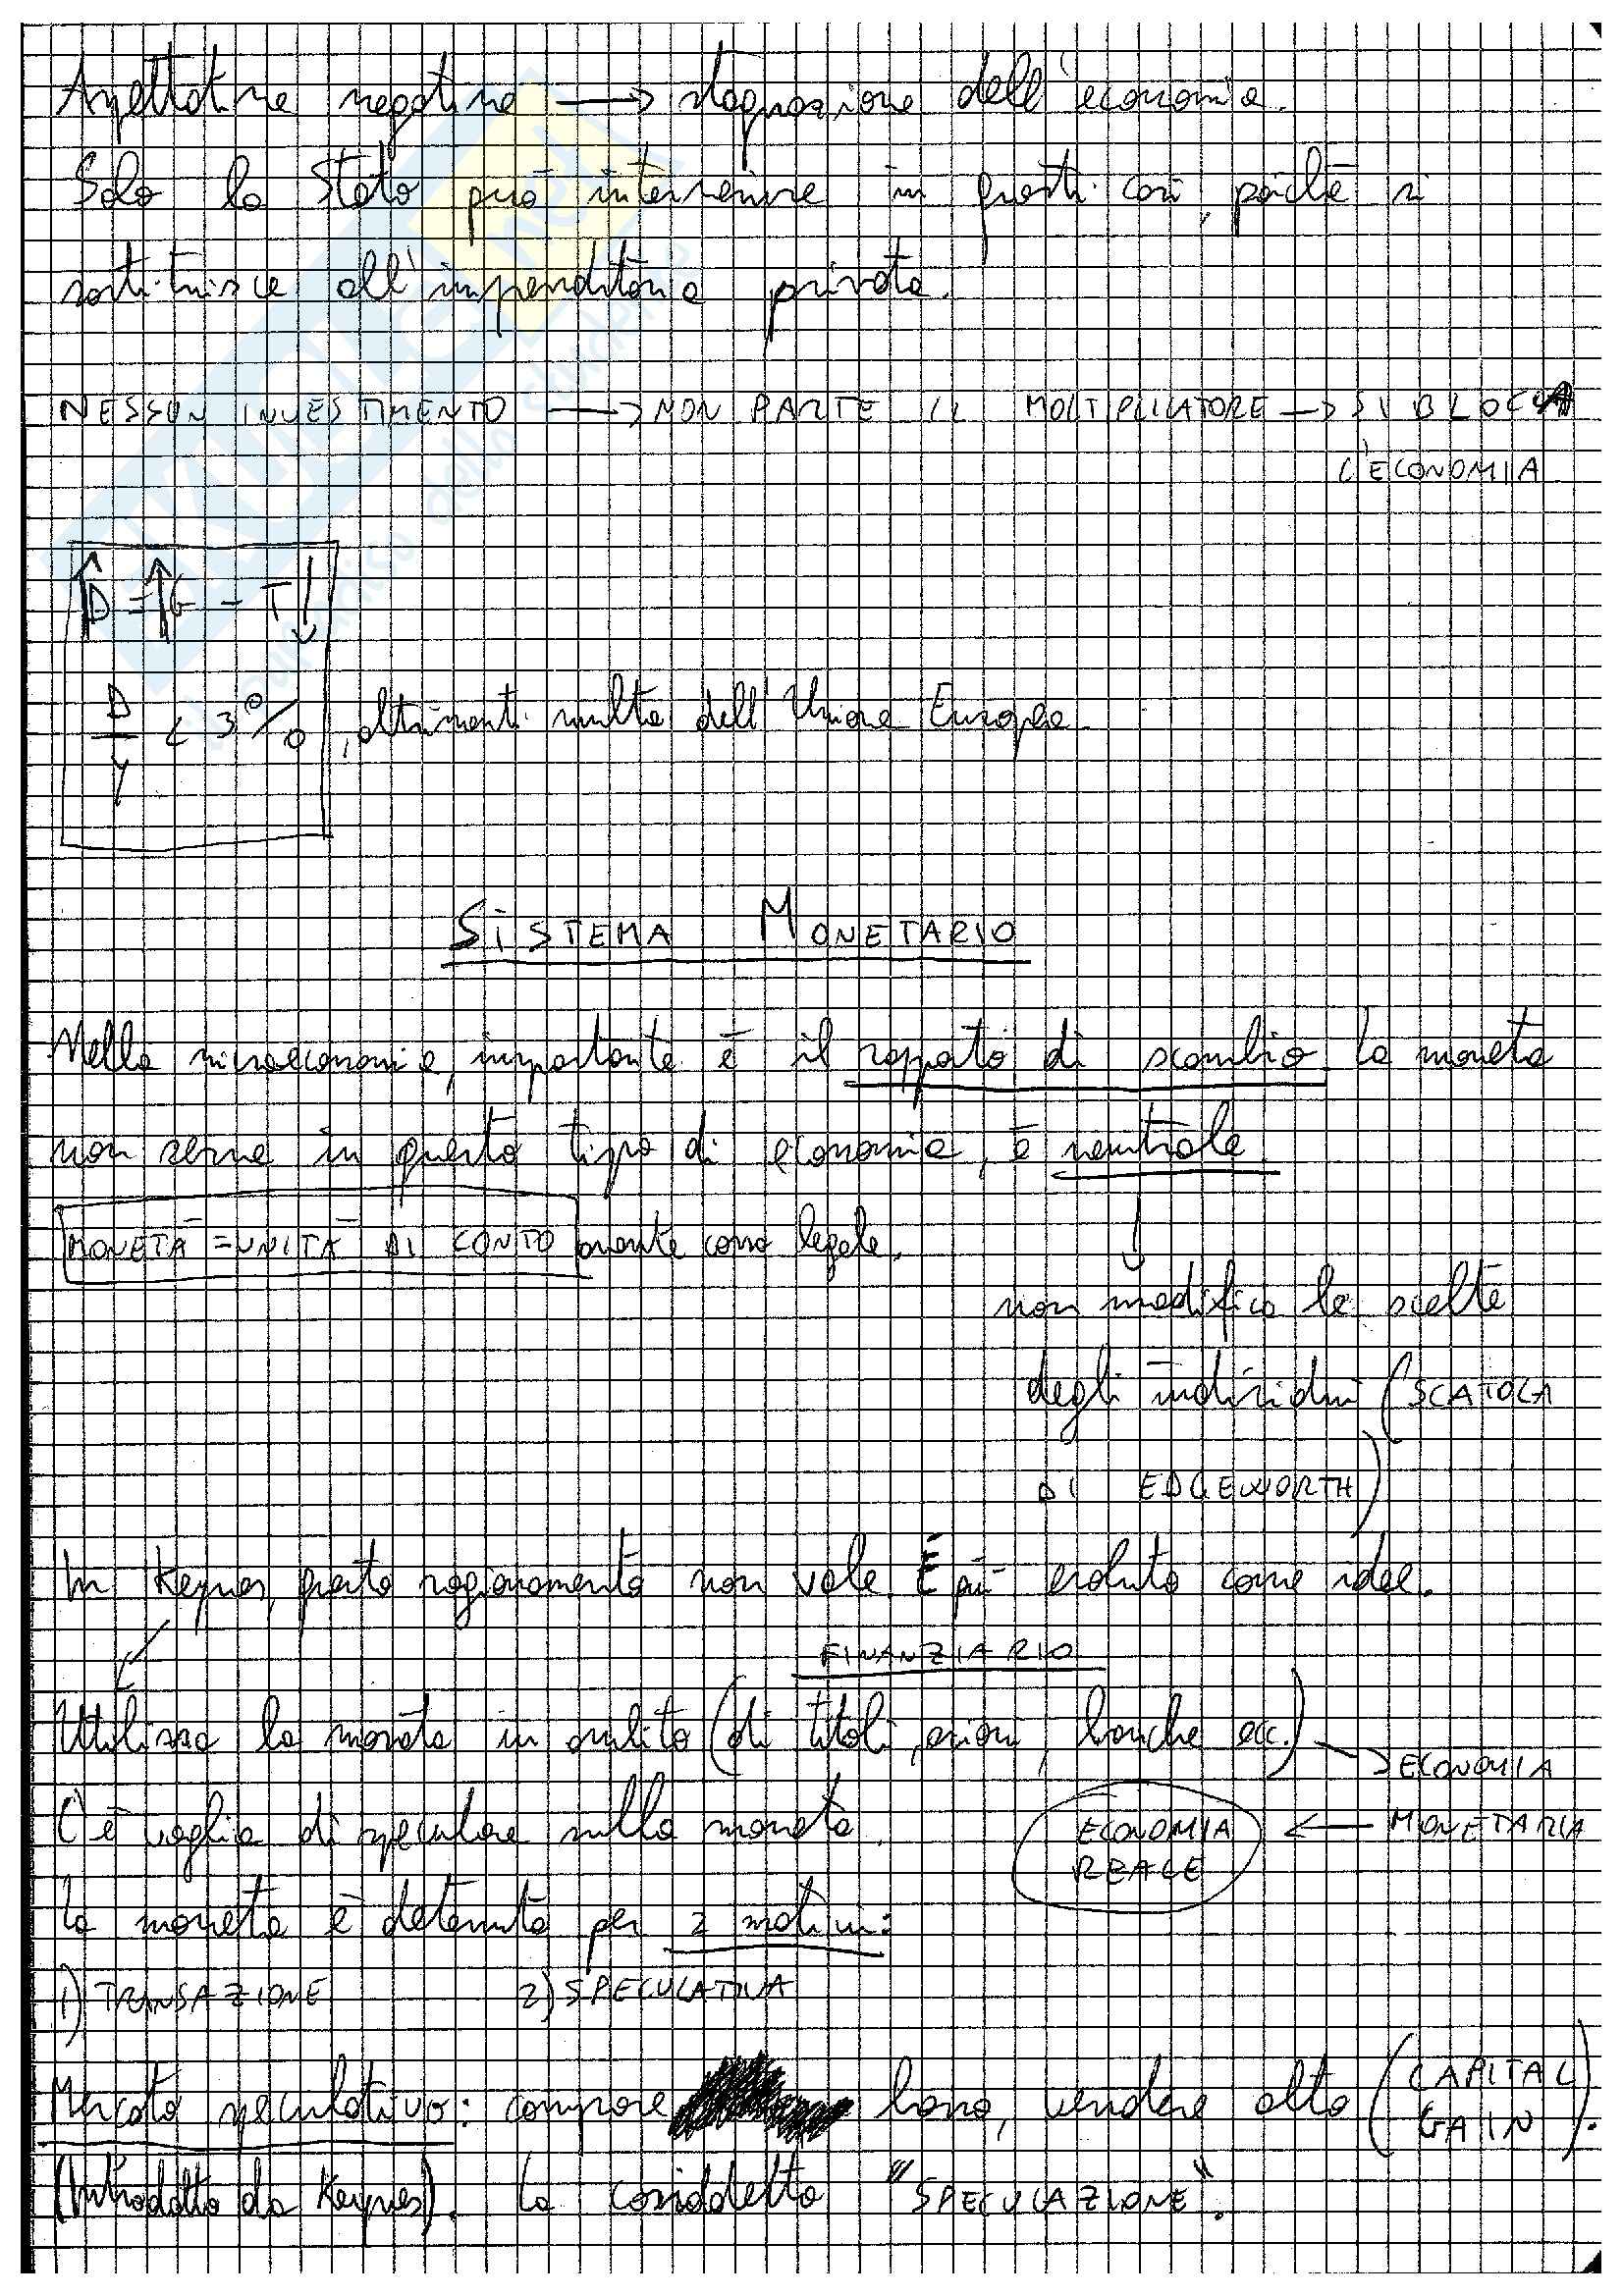 Aspettative negative → stagnazione dell'economia.
Solo lo Stato può intervenire in questi casi, poichè si
sostituisce all'imprenditoria privata.
NESSUN INVESTIMENTO → NON PARTE IL MOLTIPLICATORE → SI BLOCCA
L'ECONOMIA
↑D = ↑G - T↓
D/Y < 3%, altrimenti multa dell'Unione Europea.
SISTEMA MONETARIO
Nella microeconomia, importante è il rapporto di scambio. La moneta
non serve in questo tipo di economia, è neutrale
MONETA = UNITÀ DI CONTO avente corso legale.
↓
non modifica le scelte
degli individui (SCATOLA
DI EDGEWORTH)
In Keynes, questo ragionamento non vale. È più evoluto come idee.
FINANZIARIO
Utilizza la moneta in ambito (di titoli, azioni, banche ecc.) → ECONOMIA
C'è voglia di speculare sulla moneta. ECONOMIA ← MONETARIA
REALE
La moneta è detenuta per 2 motivi:
1) TRANSAZIONE 2) SPECULATIVA
Mercato speculativo: comprare basso, vendere alto (CAPITAL
GAIN).
(Introdotto da Keynes). La cosiddetta "SPECULAZIONE".